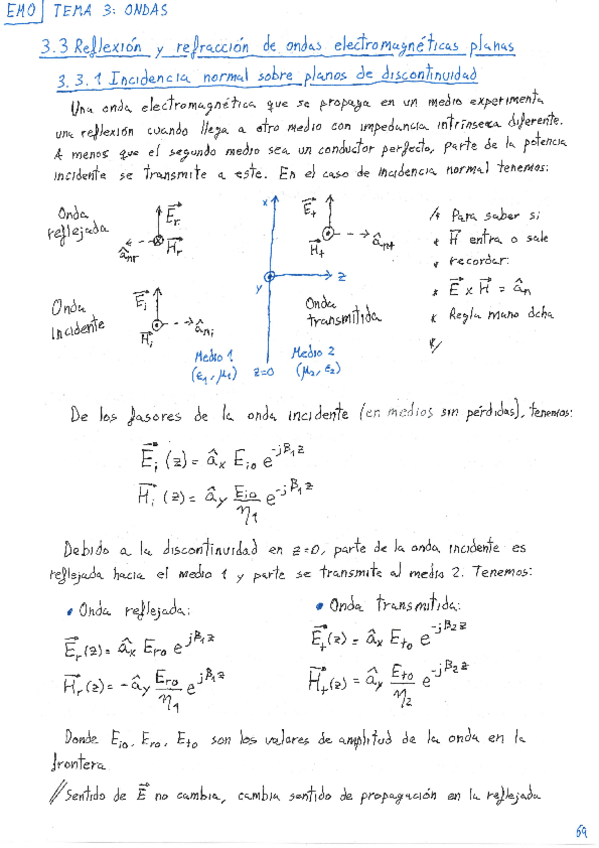 EMO TEMA 3: ONDAS
3.3 Reflexión y refracción de ondas electromagnéticas planas
3.3.1 Incidencia normal sobre planos de discontinuidad
Una onda electromagnética que se propaga en un medio experimenta
una reflexión cuando llega a otro medio con impedancia intrínseca diferente.
A menos que el segundo medio sea un conductor perfecto, parte de la potencia
incidente se transmite a este. En el caso de incidencia normal tenemos:
Onda
reflejada
E⃗r
H⃗r
ânr
x
z
y
E⃗t
H⃗t
ânt
Onda
incidente
E⃗i
H⃗i
âni
Onda
transmitida
Medio 1
(ε₁, μ₁)
z=0
Medio 2
(μ₂, ε₂)
/* Para saber si
* H⃗ entra o sale
* recordar:
* E⃗ x H⃗ = ân
* Regla mano dcha
*/
De los fasores de la onda incidente (en medios sin pérdidas), tenemos:
E⃗i (z) = âx Eio e^-jβ₁z
H⃗i (z) = ây Eio/η₁ e^-jβ₁z
Debido a la discontinuidad en z=0, parte de la onda incidente es
reflejada hacia el medio 1 y parte se transmite al medio 2. Tenemos:
• Onda reflejada:
E⃗r(z) = âx Ero e^jβ₁z
H⃗r(z) = -ây Ero/η₁ e^jβ₁z
• Onda transmitida:
E⃗t(z) = âx Eto e^-jβ₂z
H⃗t(z) = ây Eto/η₂ e^-jβ₂z
Donde Eio, Ero, Eto son los valores de amplitud de la onda en la
frontera
// Sentido de E⃗ no cambia, cambia sentido de propagación en la reflejada
69